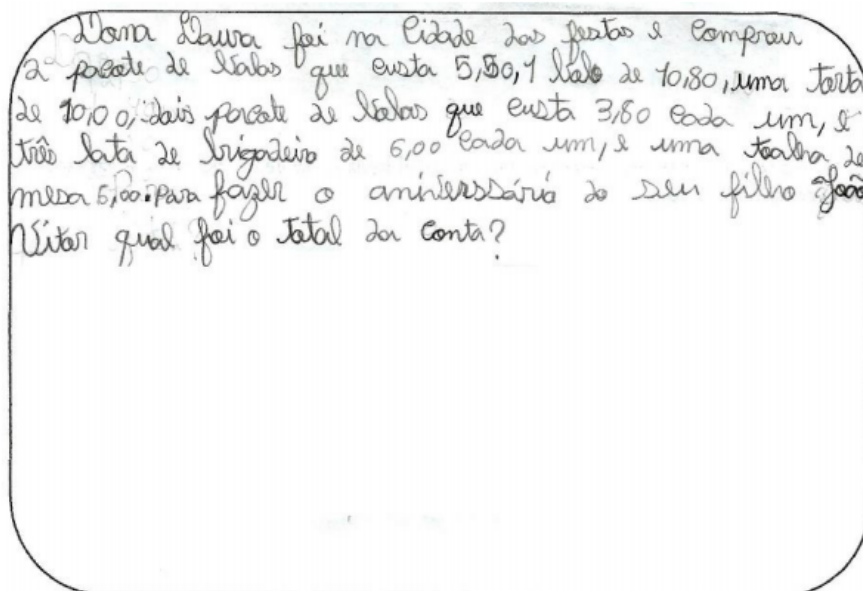 Dona Laura foi na Cidade das festas e Comprou
2 pacote de balas que custa 5,50, 1 bolo de 10,80, uma torta
de 10,00, dois pacote de balas que custa 3,80 cada um, e
três lata de brigadeiro de 6,00 cada um, e uma toalha de
mesa 5,00. Para fazer o aniverssário do seu filho João
Vitor qual foi o total da Conta?